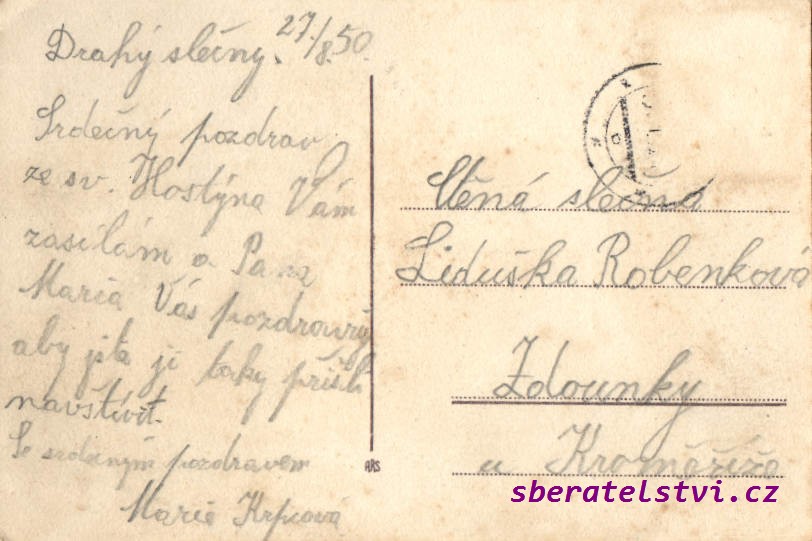 27./8.50.
Drahý slečny.
Srdečný pozdrav
ze sv. Hostýna Vám
zasílám a Pana
Maria Vás pozdravuj
aby jste ji taky přišli
navštívit.
Se srdečným pozdravem
Marie
Ctěná slečna
Liduška Robenková
Zdounky
u Kroměříže
ARS
sberatelstvi.cz